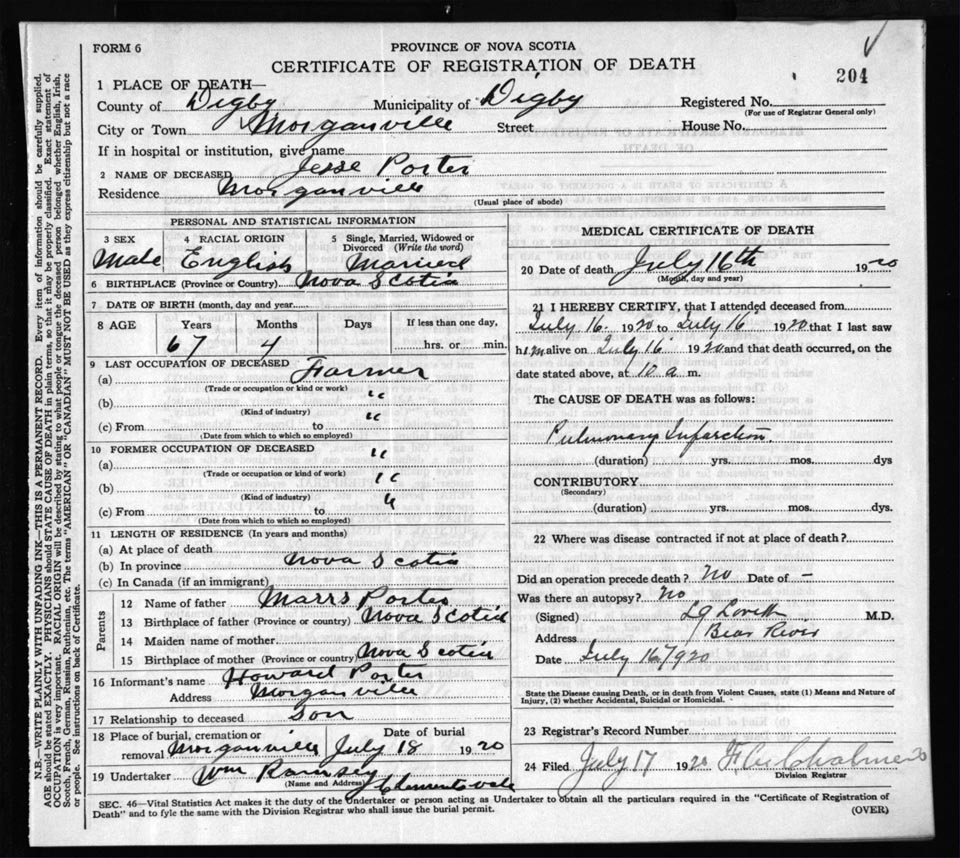 FORM 6
PROVINCE OF NOVA SCOTIA
CERTIFICATE OF REGISTRATION OF DEATH
204
1 PLACE OF DEATH—
County of Digby Municipality of Digby Registered No.
(For use of Registrar General only)
City or Town Morganville Street House No.
If in hospital or institution, give name
2 NAME OF DECEASED Jesse Porter
Residence Morganville
(Usual place of abode)
PERSONAL AND STATISTICAL INFORMATION
3 SEX 4 RACIAL ORIGIN 5 Single, Married, Widowed or
Divorced (Write the word)
Male English Married
6 BIRTHPLACE (Province or Country) Nova Scotia
7 DATE OF BIRTH (month, day and year)
8 AGE Years Months Days If less than one day,
67 4 hrs. or min.
9 LAST OCCUPATION OF DECEASED
(a) Farmer
(Trade or occupation or kind or work)
(b) "
(Kind of industry)
(c) From to "
(Date from which to which so employed)
10 FORMER OCCUPATION OF DECEASED
(a) "
(Trade or occupation or kind of work)
(b) "
(Kind of industry)
(c) From to "
(Date from which to which so employed)
11 LENGTH OF RESIDENCE (In years and months)
(a) At place of death
(b) In province Nova Scotia
(c) In Canada (if an immigrant)
Parents
12 Name of father Marrs Porter
13 Birthplace of father (Province or country) Nova Scotia
14 Maiden name of mother
15 Birthplace of mother (Province or country) Nova Scotia
16 Informant's name Howard Porter
Address Morganville
17 Relationship to deceased Son
18 Place of burial, cremation or Date of burial
removal Morganville July 18 1920
19 Undertaker Wm Ramsey
(Name and Address) Clementsvale
MEDICAL CERTIFICATE OF DEATH
20 Date of death July 16th 1920
(Month, day and year)
21 I HEREBY CERTIFY, that I attended deceased from
July 16. 1920 to July 16 1920 that I last saw
him alive on July 16 1920 and that death occurred, on the
date stated above, at 10 a m.
The CAUSE OF DEATH was as follows:
Pulmonary Infarction.
(duration) yrs. mos. dys
CONTRIBUTORY
(Secondary)
(duration) yrs. mos. dys.
22 Where was disease contracted if not at place of death?
Did an operation precede death? No Date of –
Was there an autopsy? No
(Signed) Lovett M.D.
Address Bear River
Date July 16/1920
State the Disease causing Death, or in death from Violent Causes, state (1) Means and Nature of
Injury, (2) whether Accidental, Suicidal or Homicidal.
23 Registrar's Record Number
24 Filed July 17 1920
Division Registrar
SEC. 46—Vital Statistics Act makes it the duty of the Undertaker or person acting as Undertaker to obtain all the particulars required in the "Certificate of Registration of
Death" and to fyle the same with the Division Registrar who shall issue the burial permit.
(OVER)
N.B.—WRITE PLAINLY WITH UNFADING INK—THIS IS A PERMANENT RECORD. Every item of information should be carefully supplied.
AGE should be stated EXACTLY. PHYSICIANS should STATE CAUSE OF DEATH in plain terms, so that it may be properly classified. Exact statement of
OCCUPATION is very important. RACIAL ORIGIN will be described by stating to what people or tongue the deceased person belonged whether English, Irish,
Scotch, French, German, Russian, Ruthenian, etc. The terms "AMERICAN" OR "CANADIAN" MUST NOT BE USED as they express citizenship but not a race
or people. See instructions on back of Certificate.